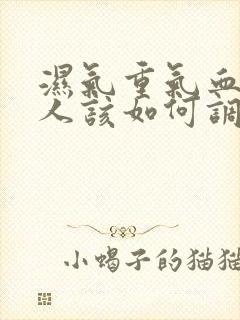 濕氣重氣血
人該如何調
小蝎子的猫猫